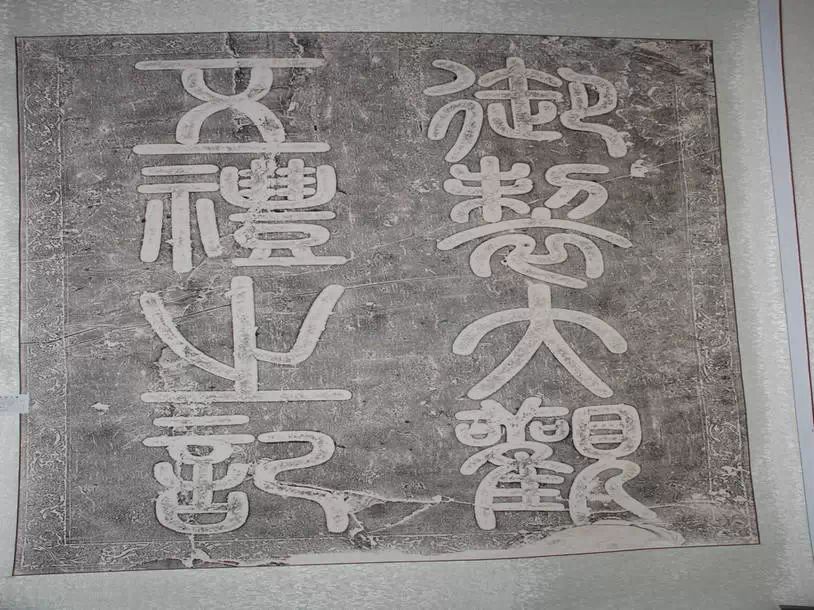 御製大觀
五禮之記